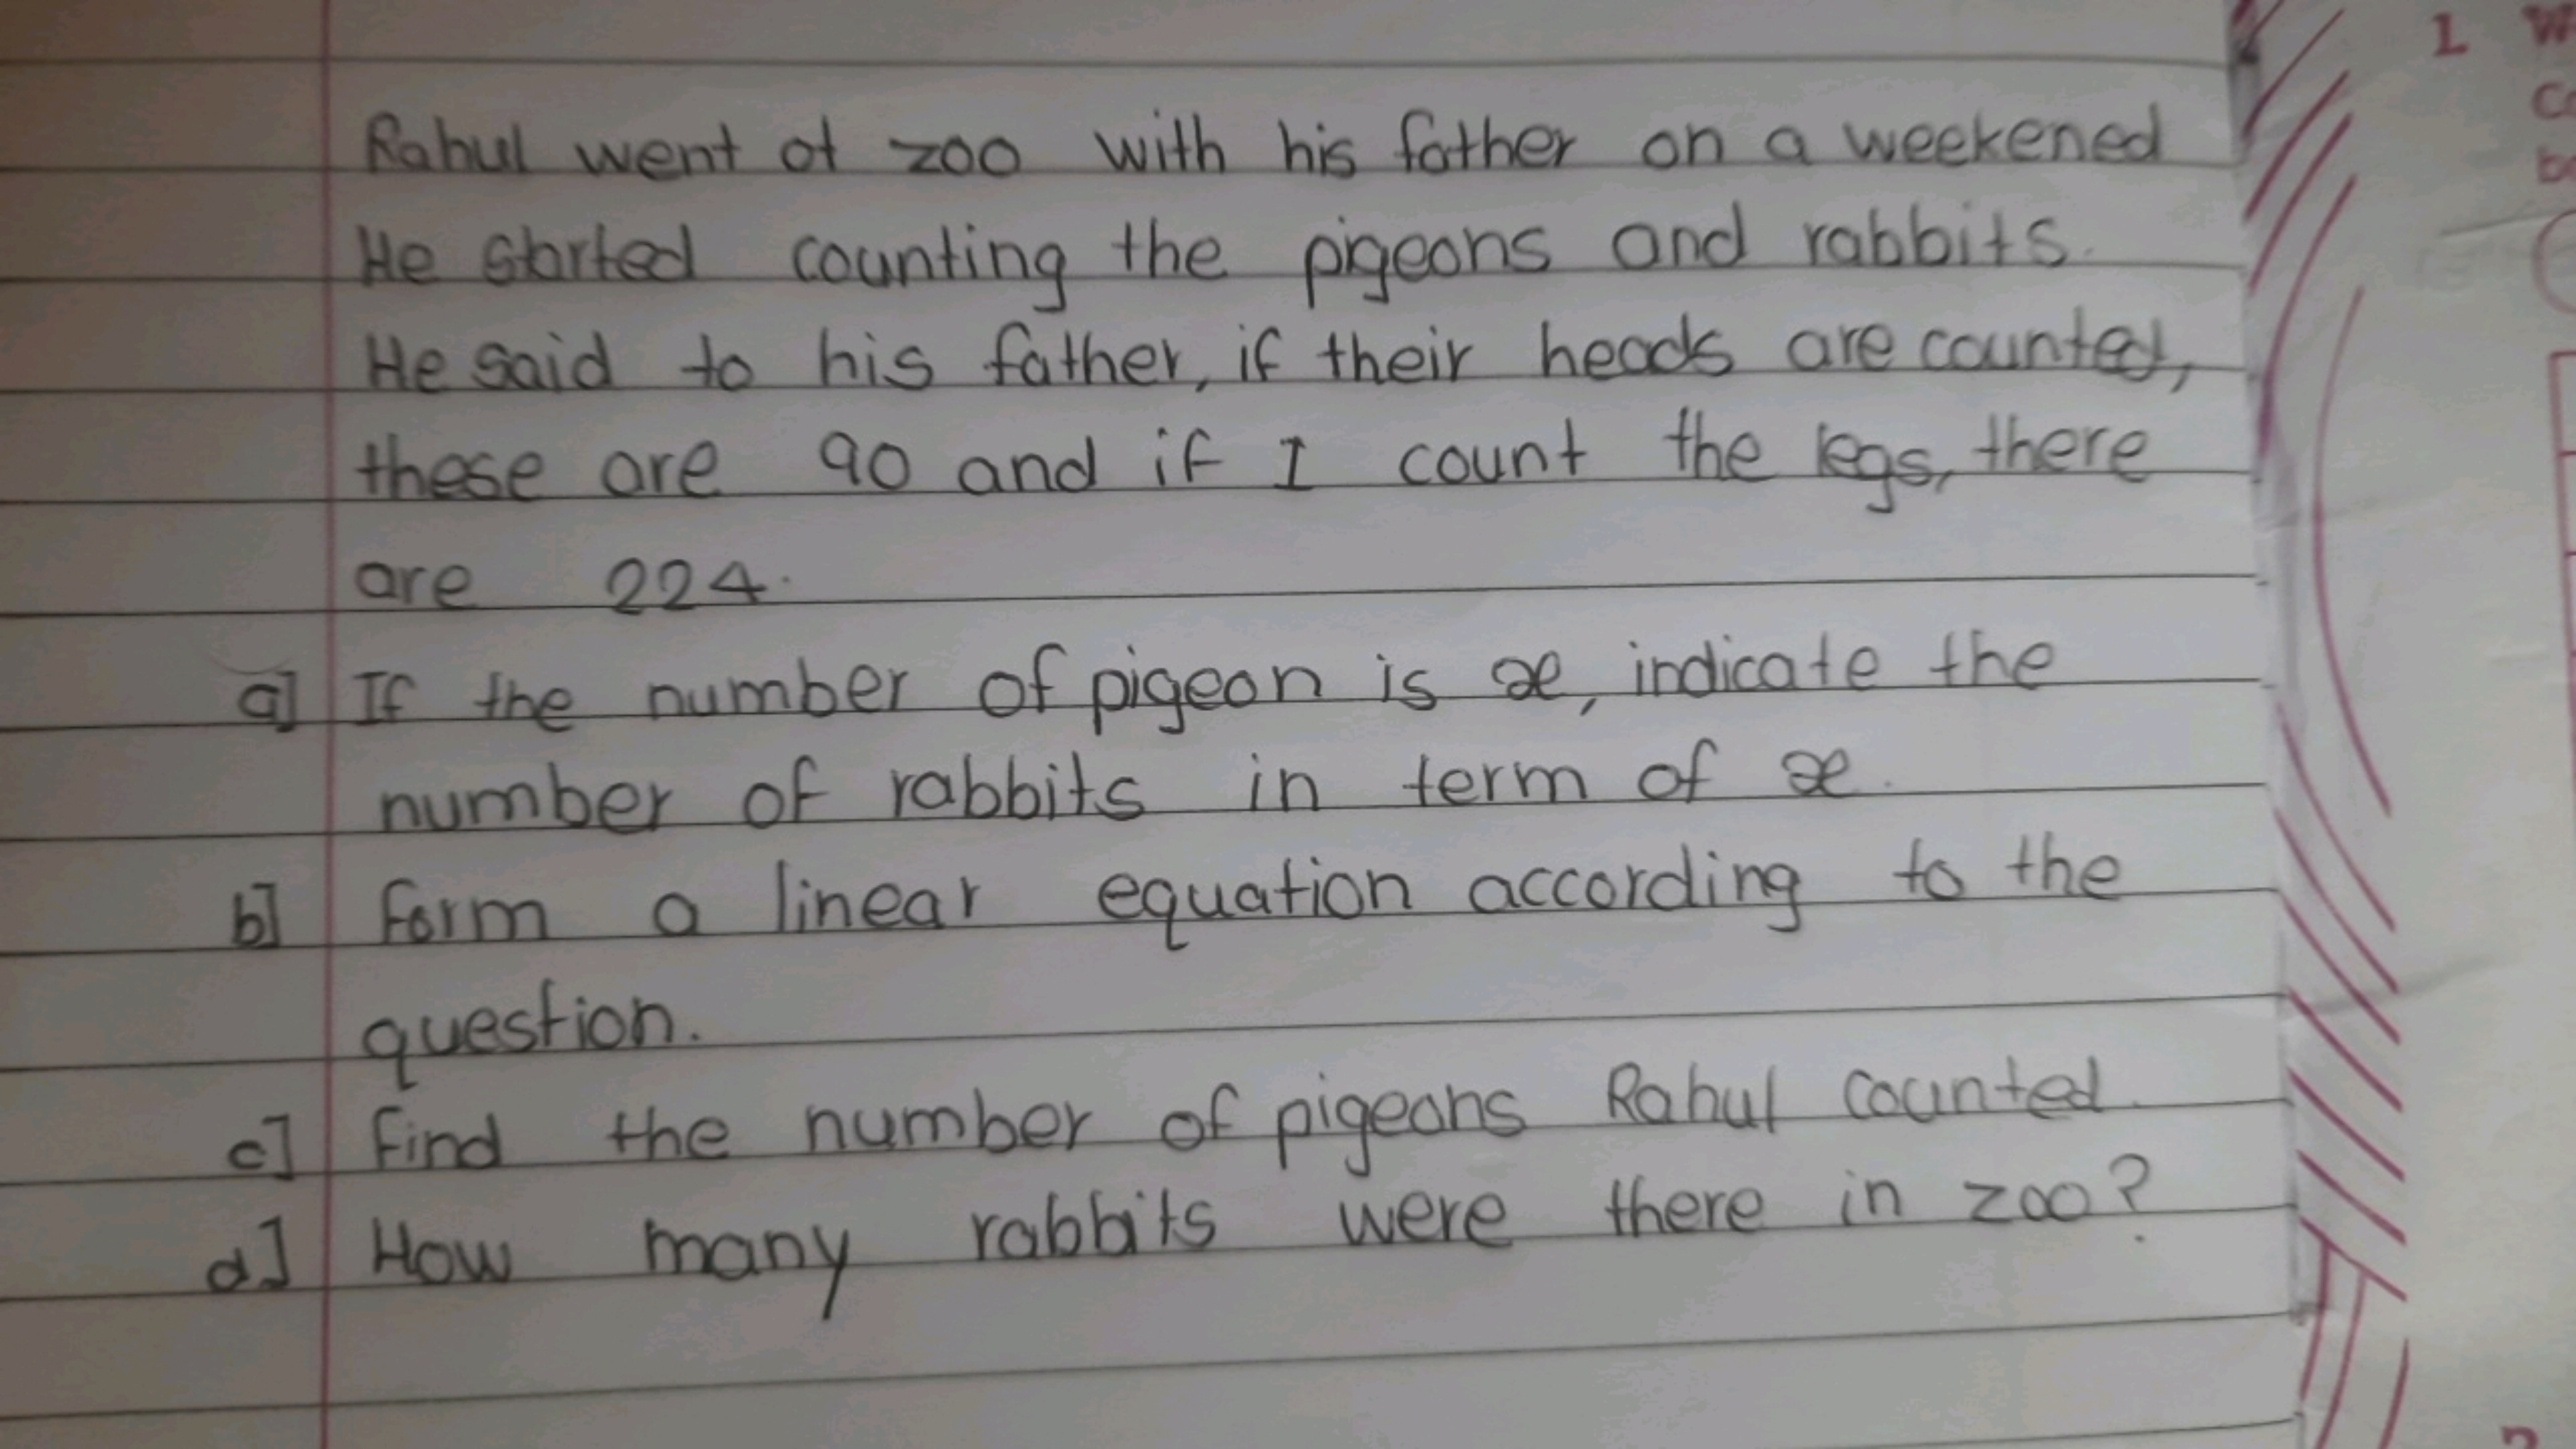 Rahul went at zoo with his father on a weekened
He started counting the pigeons and rabbits.
He said to his father, if their heads are counted,
these are 90 and if I count the legs, there
are 224.
a] If the number of pigeon is x, indicate the
number of rabbits in term of x.
b] Form a linear equation according to the
question.
c] Find the number of pigeons Rahul counted.
d] How many rabbits were there in zoo?
1